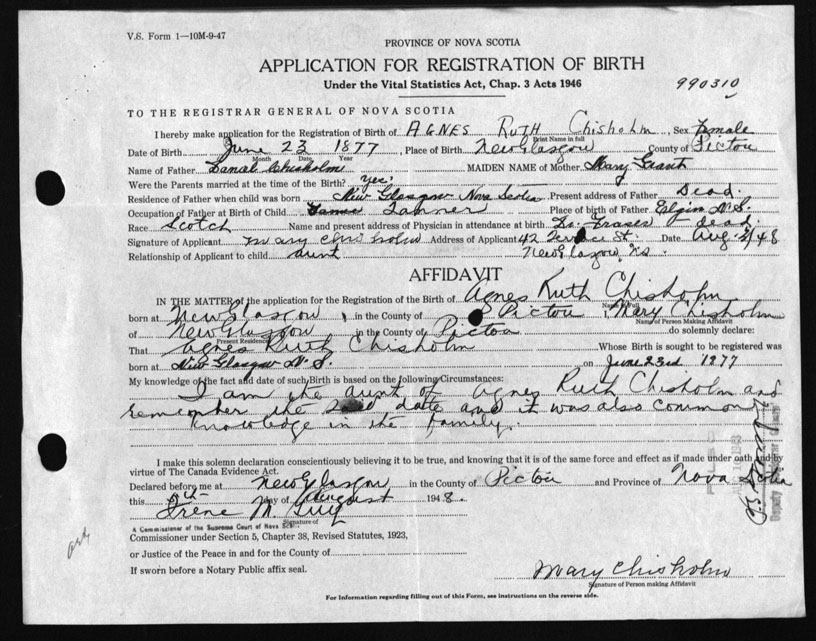 V.S. Form 1—10M-9-47
PROVINCE OF NOVA SCOTIA
APPLICATION FOR REGISTRATION OF BIRTH
Under the Vital Statistics Act, Chap. 3 Acts 1946
990310
TO THE REGISTRAR GENERAL OF NOVA SCOTIA
I hereby make application for the Registration of Birth of AGNES RUTH Chisholm, Sex Female
Print Name in full
Date of Birth June 23 1877, Place of Birth New Glasgow County of Pictou
Month Date Year
Name of Father Daniel Chisholm MAIDEN NAME of Mother Mary Grant
Were the Parents married at the time of the Birth? yes
Residence of Father when child was born New Glasgow Nova Scotia Present address of Father Dead.
Occupation of Father at Birth of Child Tanner Place of birth of Father Elgin N.S.
Race Scotch Name and present address of Physician in attendance at birth Dr. Fraser dead.
Signature of Applicant Mary Chisholm Address of Applicant 42 Terrace St. Date Aug. /48
Relationship of Applicant to child aunt New Glasgow, N.S.
AFFIDAVIT
IN THE MATTER of the application for the Registration of the Birth of Agnes Ruth Chisholm
Name in Full
born at New Glasgow, in the County of Pictou, Mary Chisholm
Name of Person Making Affidavit
of New Glasgow in the County of Pictou do solemnly declare:
Present Residence
That Agnes Ruth Chisholm Whose Birth is sought to be registered was
born at New Glasgow N.S. on June 23rd 1877
My knowledge of the fact and date of such Birth is based on the following Circumstances:
I am the aunt of Agnes Ruth Chisholm and
remember the date and it was also common
knowledge in the family.
I make this solemn declaration conscientiously believing it to be true, and knowing that it is of the same force and effect as if made under oath and by
virtue of The Canada Evidence Act.
Declared before me at New Glasgow in the County of Pictou and Province of Nova Scotia
this day of August 1948.
Irene M. Guy
Signature of
A Commissioner of the Supreme Court of Nova Sco
Commissioner under Section 5, Chapter 38, Revised Statutes, 1923,
or Justice of the Peace in and for the County of
If sworn before a Notary Public affix seal.
Mary Chisholm
Signature of Person making Affidavit
For Information regarding filling out of this Form, see instructions on the reverse side.